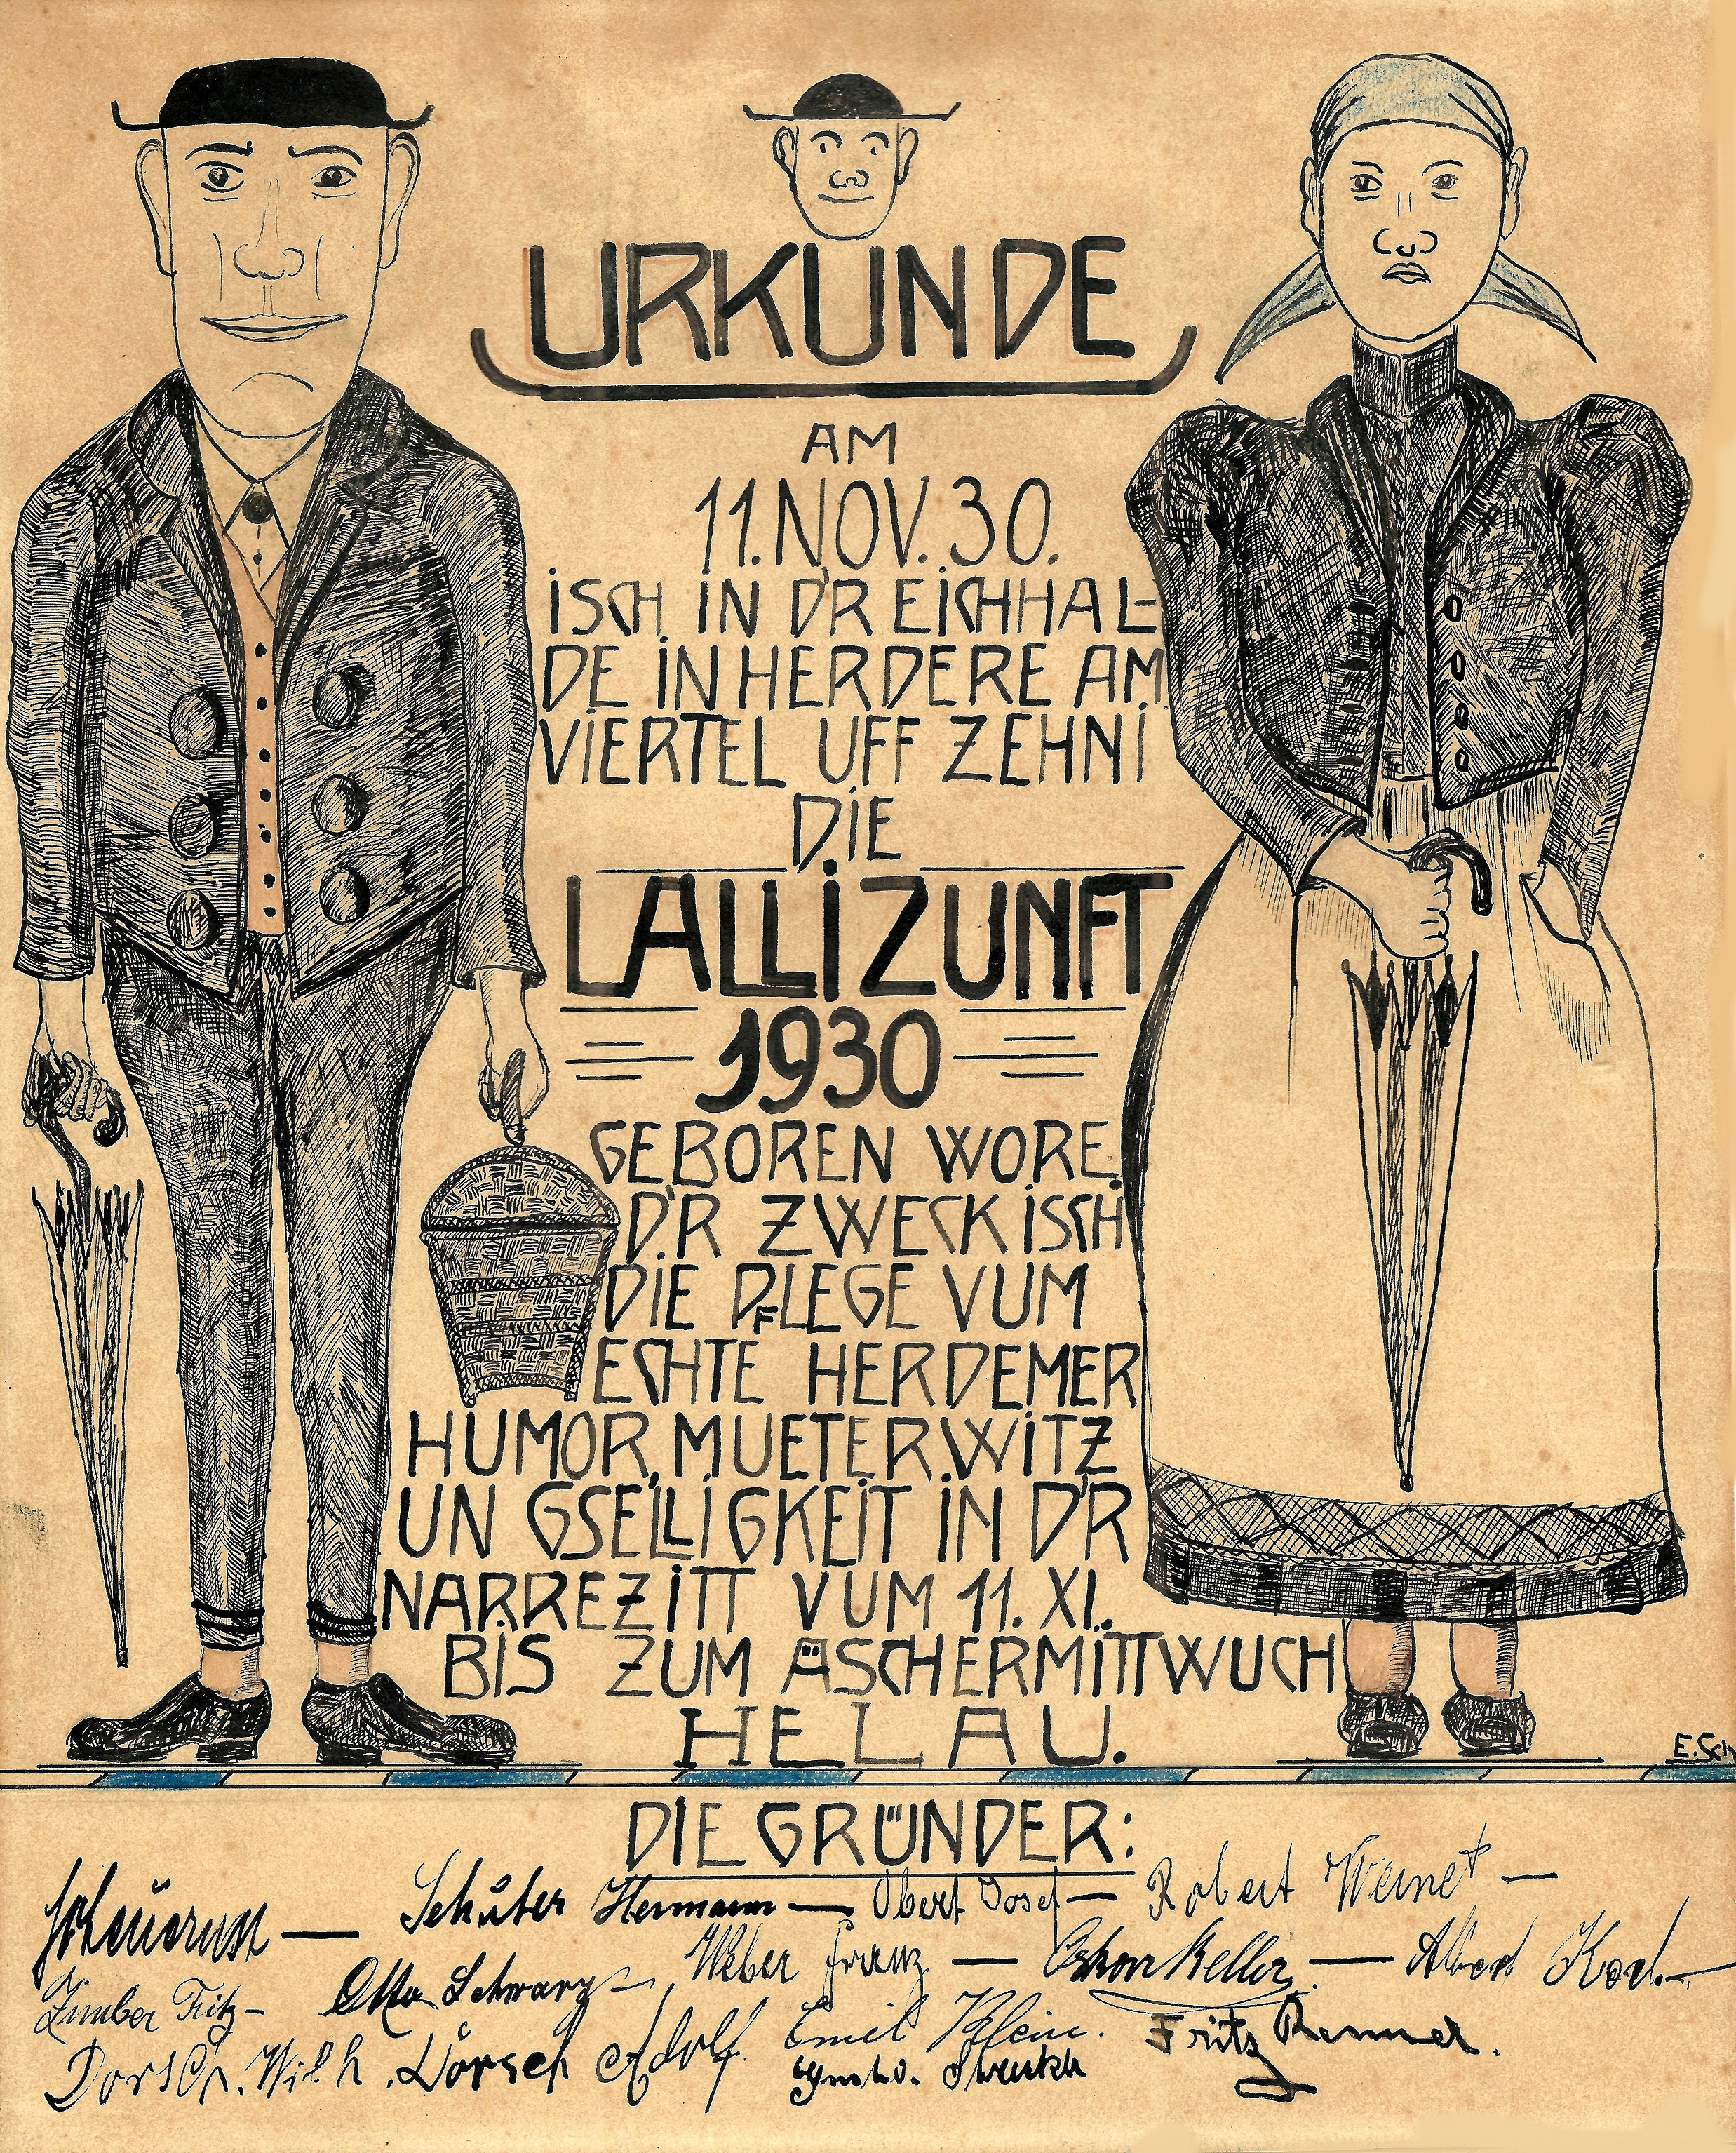 URKUNDE
AM
11. NOV. 30.
ISCH IN D'R EICHHAL-
DE IN HERDERE AM
VIERTEL UFF ZEHNI
DIE
LALLIZUNFT
1930
GEBOREN WORE.
D'R ZWECK ISCH
DIE PFLEGE VUM
ECHTE HERDEMER
HUMOR, MUETERWITZ
UN GSELLIGKEIT IN D'R
NARREZITT VUM 11. XI.
BIS ZUM ÄSCHERMITTWUCH
HELAU.
E. Sch
DIE GRÜNDER:
Schüber Hermann — Obert Josef — Robert Weinet —
Zimber Fritz — Otto Schwarz — Weber Franz — Oskar Keller. — Albert Koch —
Dorsch. Wilh. Dörsch Adolf Emil Klein. Fritz Renner.